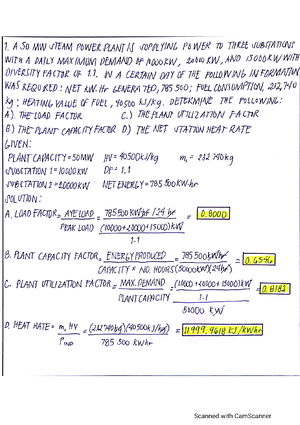 1. A 50 MW STEAM POWER PLANT IS SUPPLYING POWER TO THREE SUBSTATIONS
WITH A DAILY MAXIMUM DEMAND OF 10000 KW, 20000 KW, AND 15000 KW WITH
DIVERSITY FACTOR OF 1.1. IN A CERTAIN DAY OF THE FOLLOWING INFORMATION
WAS REQUIRED: NET KW.Hr GENERATED, 785,500; FUEL CONSUMPTION, 232,740
kg; HEATING VALUE OF FUEL, 40500 KJ/Kg. DETERMINE THE FOLLOWING:
A). THE LOAD FACTOR C.) THE PLANT UTILIZATION FACTOR
B) THE PLANT CAPACITY FACTOR D) THE NET STATION HEAT RATE
GIVEN:
PLANT CAPACITY = 50MW HV = 40500KJ/kg m, = 232 740kg
SUBSTATION 1 = 10000 KW DF = 1.1
SUBSTATION 2 = 20000KW NET ENERGY = 785 500 KW-hr
SOLUTION:
A. LOAD FACTOR = AVE LOAD = 785 500 KW-hr / 24 hr = 0.8000
PEAK LOAD (10000+20000+15000)KW
1.1
B. PLANT CAPACITY FACTOR = ENERGY PRODUCED = 785 500KWhr = 0.6546
CAPACITY × NO. HOURS (50000KW)(24hr)
C. PLANT UTILIZATION FACTOR = MAX. DEMAND = (10000 + 20000 + 15000)KW = 0.8182
PLANT CAPACITY 1.1
50000 KW
D. HEAT RATE = m, HV = (232 740kg)(40500KJ/kg) = 11 999.9618 KJ/KWhr
785 500 KWhr
Scanned with CamScanner